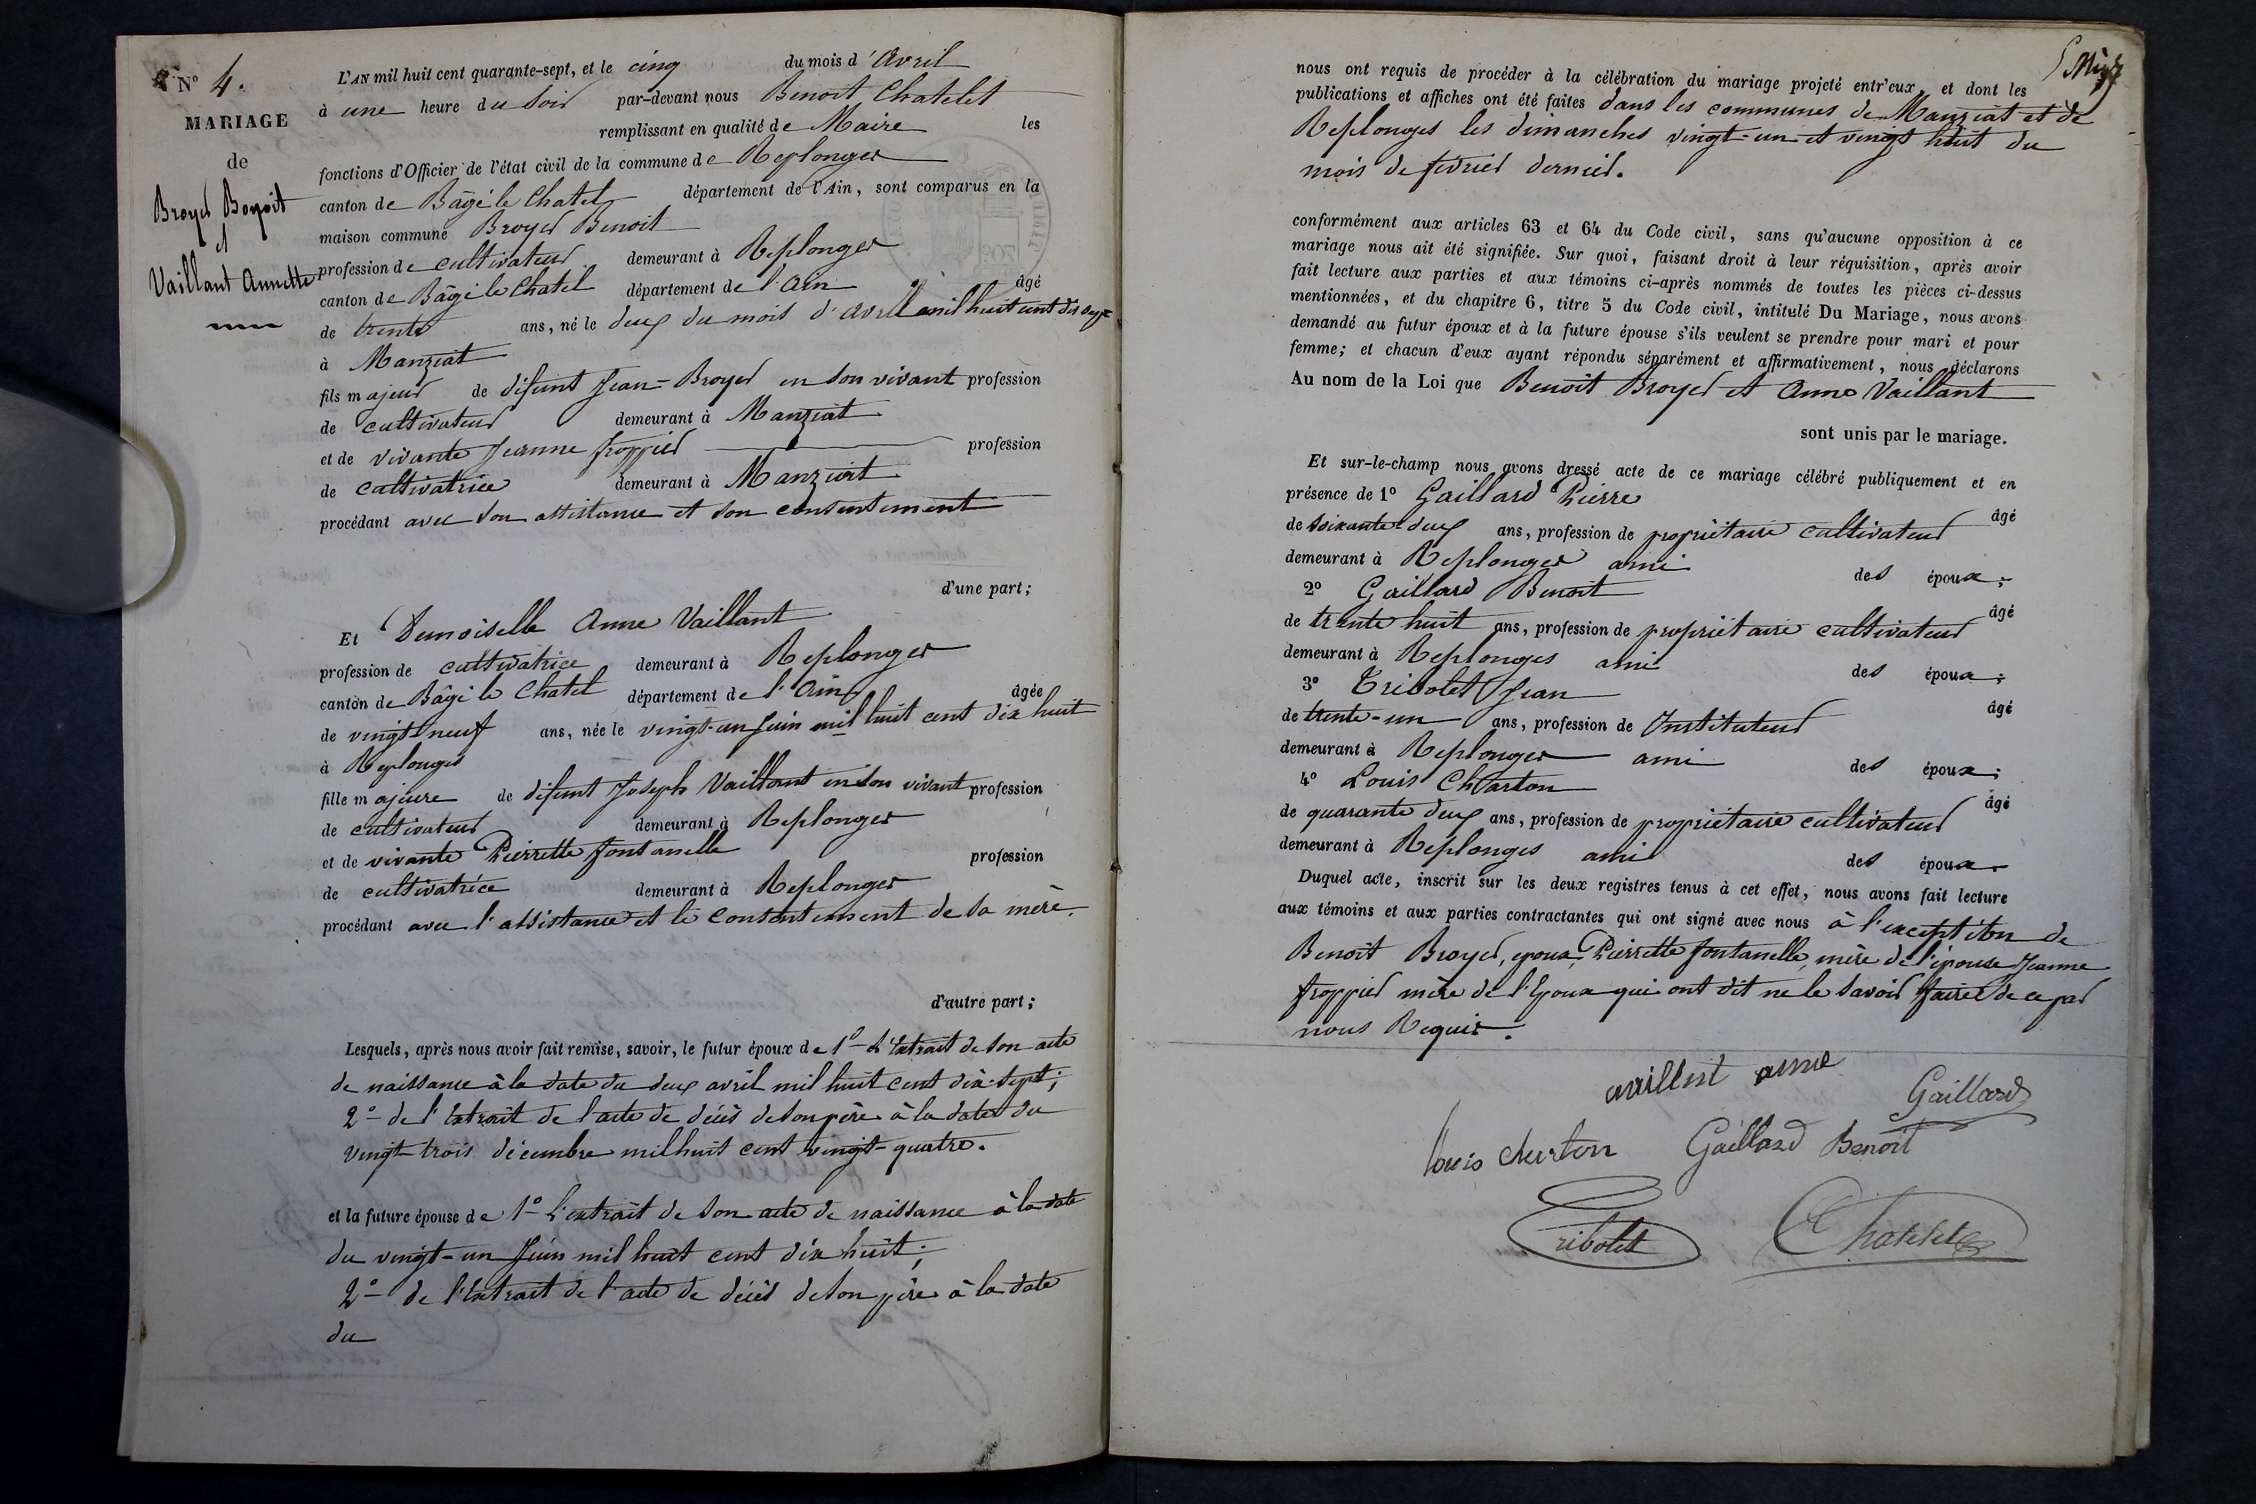 N° 4.
MARIAGE
de
Broyer Benoit
et
Vaillant Annette
L'AN mil huit cent quarante-sept, et le cinq du mois d'Avril
à une heure du soir par-devant nous Benoit Chatelet
remplissant en qualité de Maire les
fonctions d'Officier de l'état civil de la commune de Replonges
canton de Bâgé le Chatel département de l'Ain, sont comparus en la
maison commune Broyer Benoit
profession de cultivateur demeurant à Replonges
canton de Bâgé le Chatel département de l'Ain âgé
de trente ans, né le deux du mois d'avril mil huit cent dix sept
à Manziat
fils majeur de défunt Jean-Broyer en son vivant profession
de cultivateur demeurant à Manziat
et de vivante Jeanne froppier profession
de cultivatrice demeurant à Manziat
procédant avec son assistance et son consentement
d'une part;
Et Demoiselle Anne Vaillant
profession de cultivatrice demeurant à Replonges
canton de Bâgé le Chatel département de l'Ain âgée
de vingt neuf ans, née le vingt-un juin mil huit cent dix huit
à Replonges
fille majeure de défunt Joseph Vaillant en son vivant profession
de cultivateur demeurant à Replonges
et de vivante Pierrette fontanelle profession
de cultivatrice demeurant à Replonges
procédant avec l'assistance et le consentement de sa mère.
d'autre part;
Lesquels, après nous avoir fait remise, savoir, le futur époux de 1° L'extrait de son acte
de naissance à la date du deux avril mil huit cent dix-sept;
2° de l'extrait de l'acte de décès de son père à la date du
vingt-trois décembre mil huit cent vingt-quatre.
et la future épouse de 1° L'extrait de son acte de naissance à la date
du vingt-un juin mil huit cent dix huit;
2° de l'extrait de l'acte de décès de son père à la date
du
nous ont requis de procéder à la célébration du mariage projeté entr'eux, et dont les
publications et affiches ont été faites dans les communes de Manziat et de
Replonges les dimanches vingt-un et vingt huit du
mois de février dernier.
conformément aux articles 63 et 64 du Code civil, sans qu'aucune opposition à ce
mariage nous ait été signifiée. Sur quoi, faisant droit à leur réquisition, après avoir
fait lecture aux parties et aux témoins ci-après nommés de toutes les pièces ci-dessus
mentionnées, et du chapitre 6, titre 5 du Code civil, intitulé Du Mariage, nous avons
demandé au futur époux et à la future épouse s'ils veulent se prendre pour mari et pour
femme; et chacun d'eux ayant répondu séparément et affirmativement, nous déclarons
Au nom de la Loi que Benoit Broyer et Anne Vaillant
sont unis par le mariage.
Et sur-le-champ nous avons dressé acte de ce mariage célébré publiquement et en
présence de 1° Gaillard Pierre âgé
de soixante-deux ans, profession de propriétaire cultivateur
demeurant à Replonges ami des époux;
2° Gaillard Benoit âgé
de trente huit ans, profession de propriétaire cultivateur
demeurant à Replonges ami des époux;
3° Tribolet Jean âgé
de trente-un ans, profession de Instituteur
demeurant à Replonges ami des époux;
4° Louis Charton âgé
de quarante deux ans, profession de propriétaire cultivateur
demeurant à Replonges ami des époux.
Duquel acte, inscrit sur les deux registres tenus à cet effet, nous avons fait lecture
aux témoins et aux parties contractantes qui ont signé avec nous à l'exception de
Benoit Broyer, époux, Pierrette fontanelle, mère de l'épouse Jeanne
froppier mère de l'époux qui ont dit ne le savoir faire de ce par
nous Requis.
vaillent anne
Gaillard
louis churton Gaillard Benoit
Tribolet Chatelet